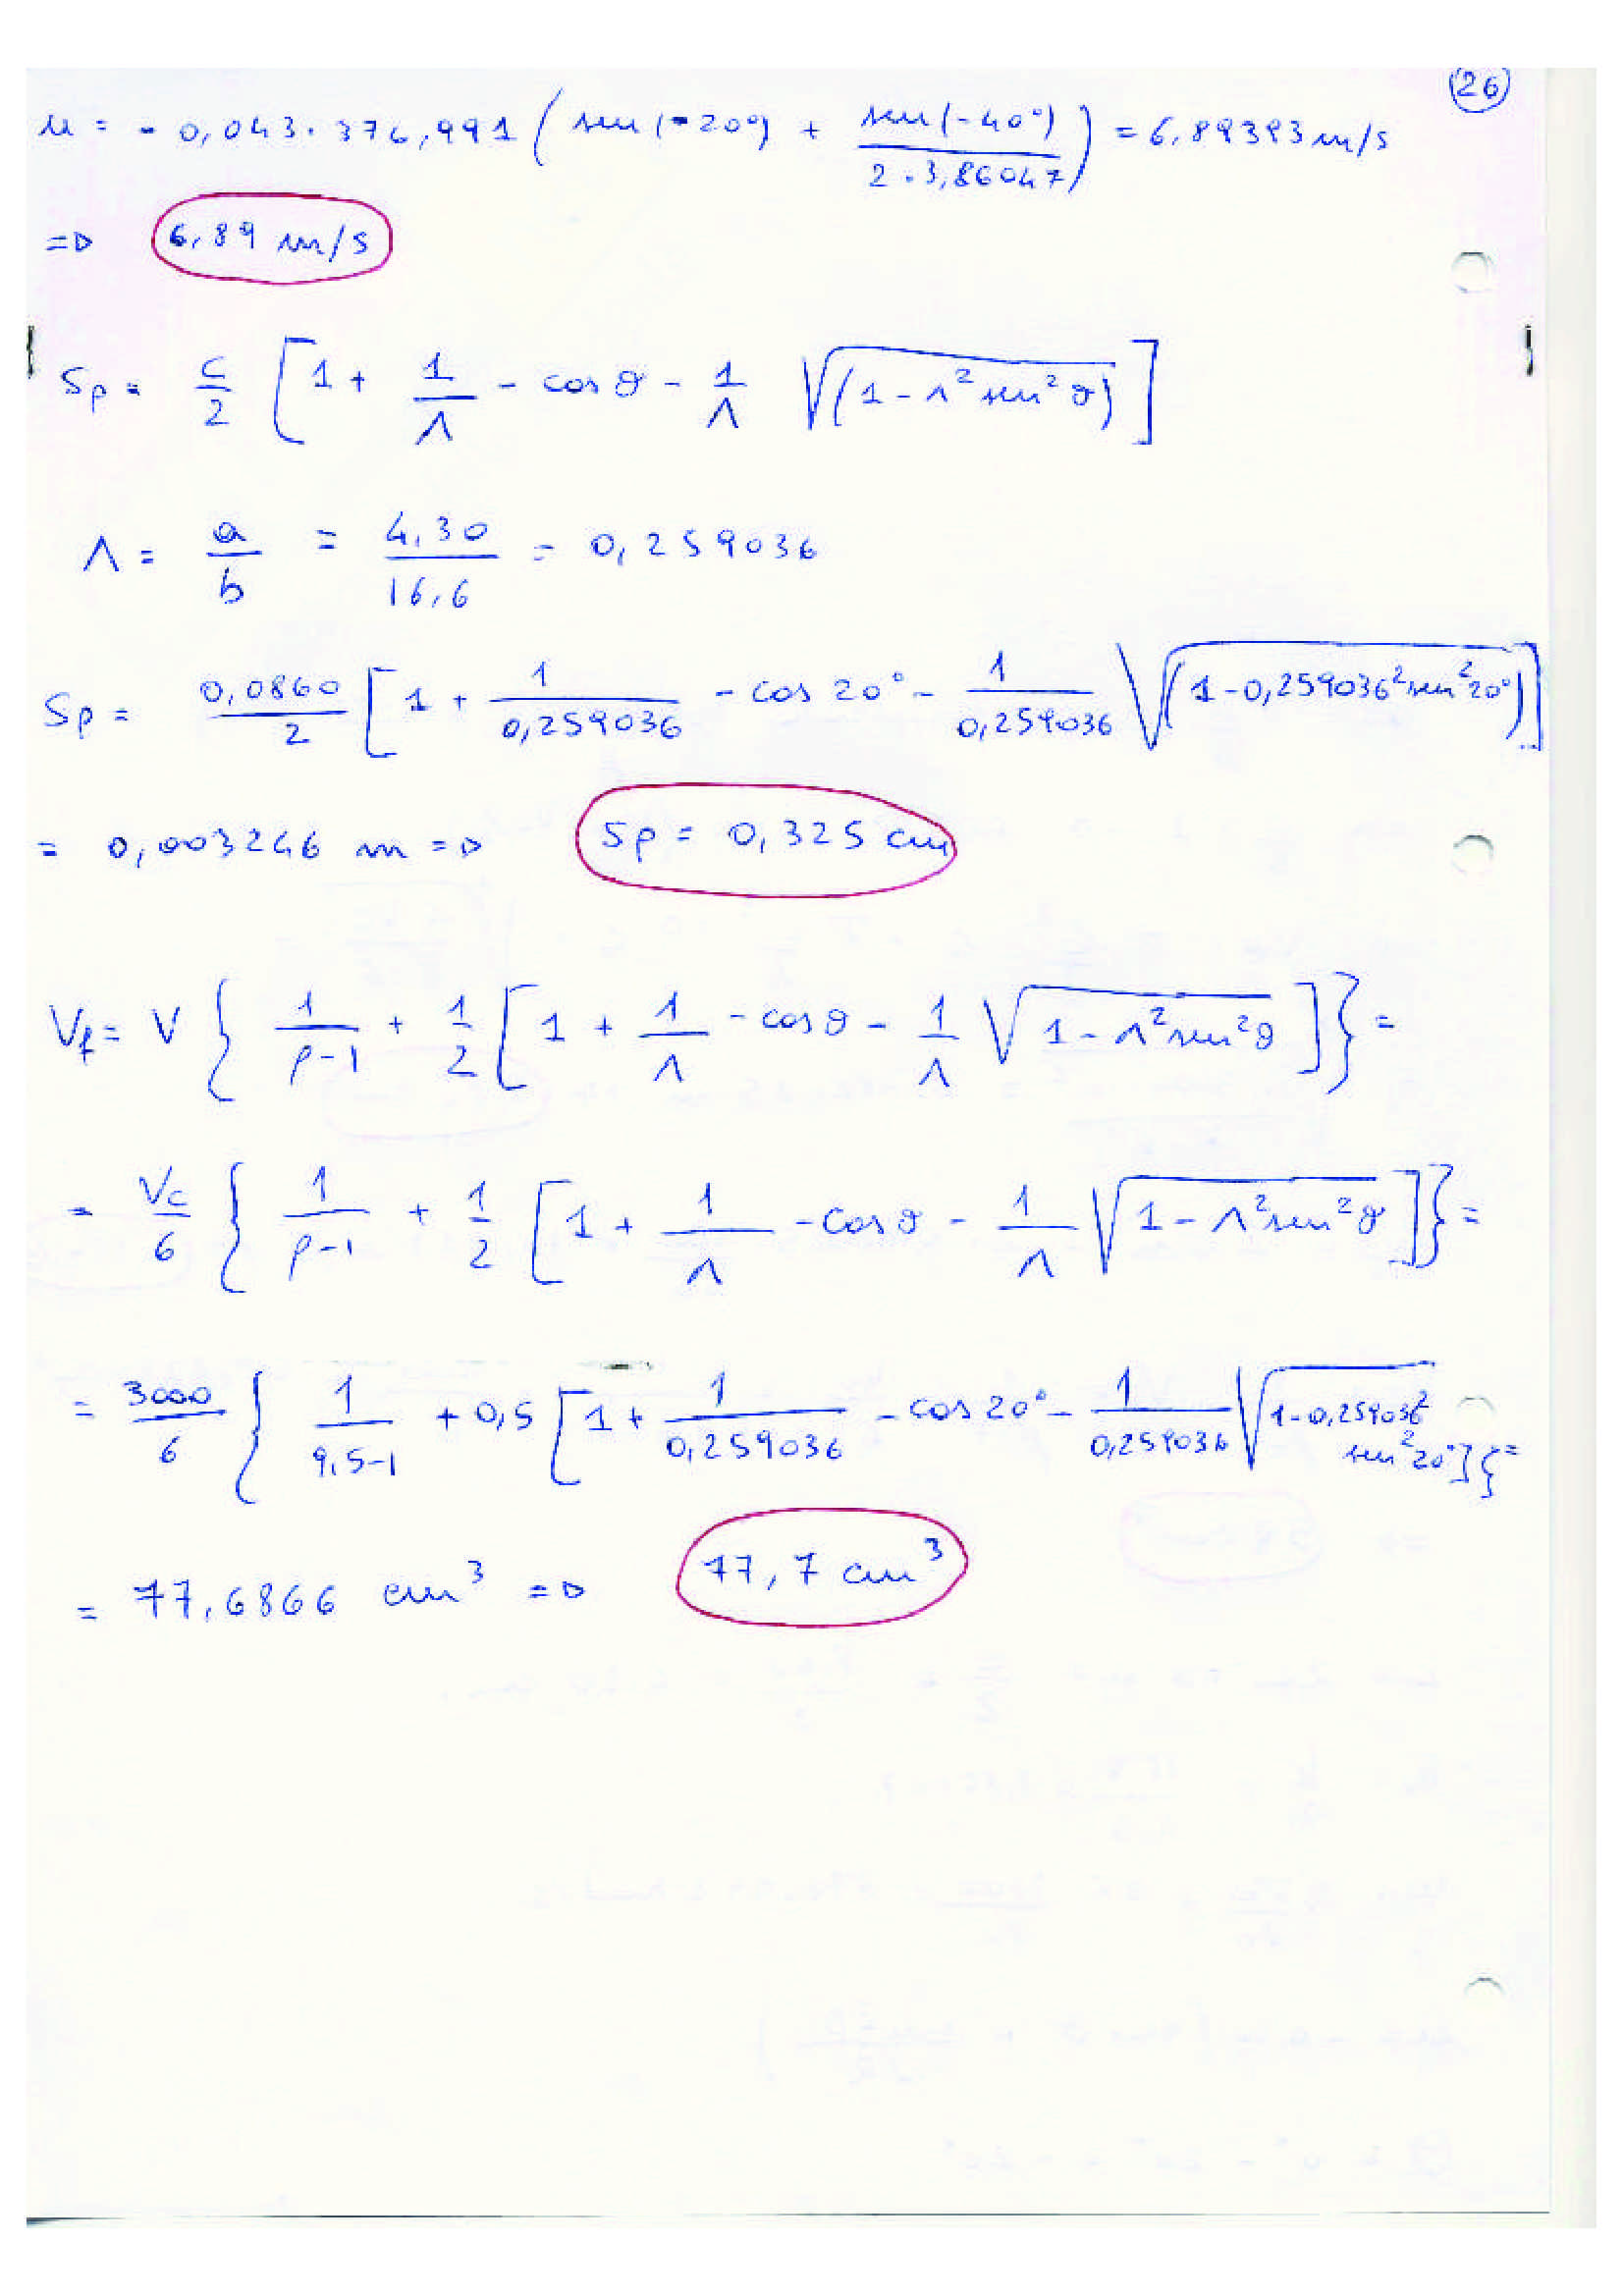 26
u = - 0,043 · 376,991 ( sen (-20°) + sen(-40°) / 2 · 3,86047 ) = 6,89393 m/s
=> 6,89 m/s
Sp = c/2 [ 1 + 1/Λ - cos θ - 1/Λ √(1 - Λ² sen² θ) ]
Λ = a/b = 4,30/16,6 = 0,259036
Sp = 0,0860/2 [ 1 + 1/0,259036 - cos 20° - 1/0,259036 √(1-0,259036² sen² 20°) ]
= 0,003246 m => Sp = 0,325 cm
Vf = V { 1/ρ-1 + 1/2 [ 1 + 1/Λ - cos θ - 1/Λ √1 - Λ² sen² θ ] } =
= Vc/6 { 1/ρ-1 + 1/2 [ 1 + 1/Λ - cos θ - 1/Λ √1 - Λ² sen² θ ] } =
= 3000/6 { 1/9,5-1 + 0,5 [ 1 + 1/0,259036 - cos 20° - 1/0,259036 √1-0,259036² sen² 20° ] } =
= 77,6866 cm³ => 77,7 cm³